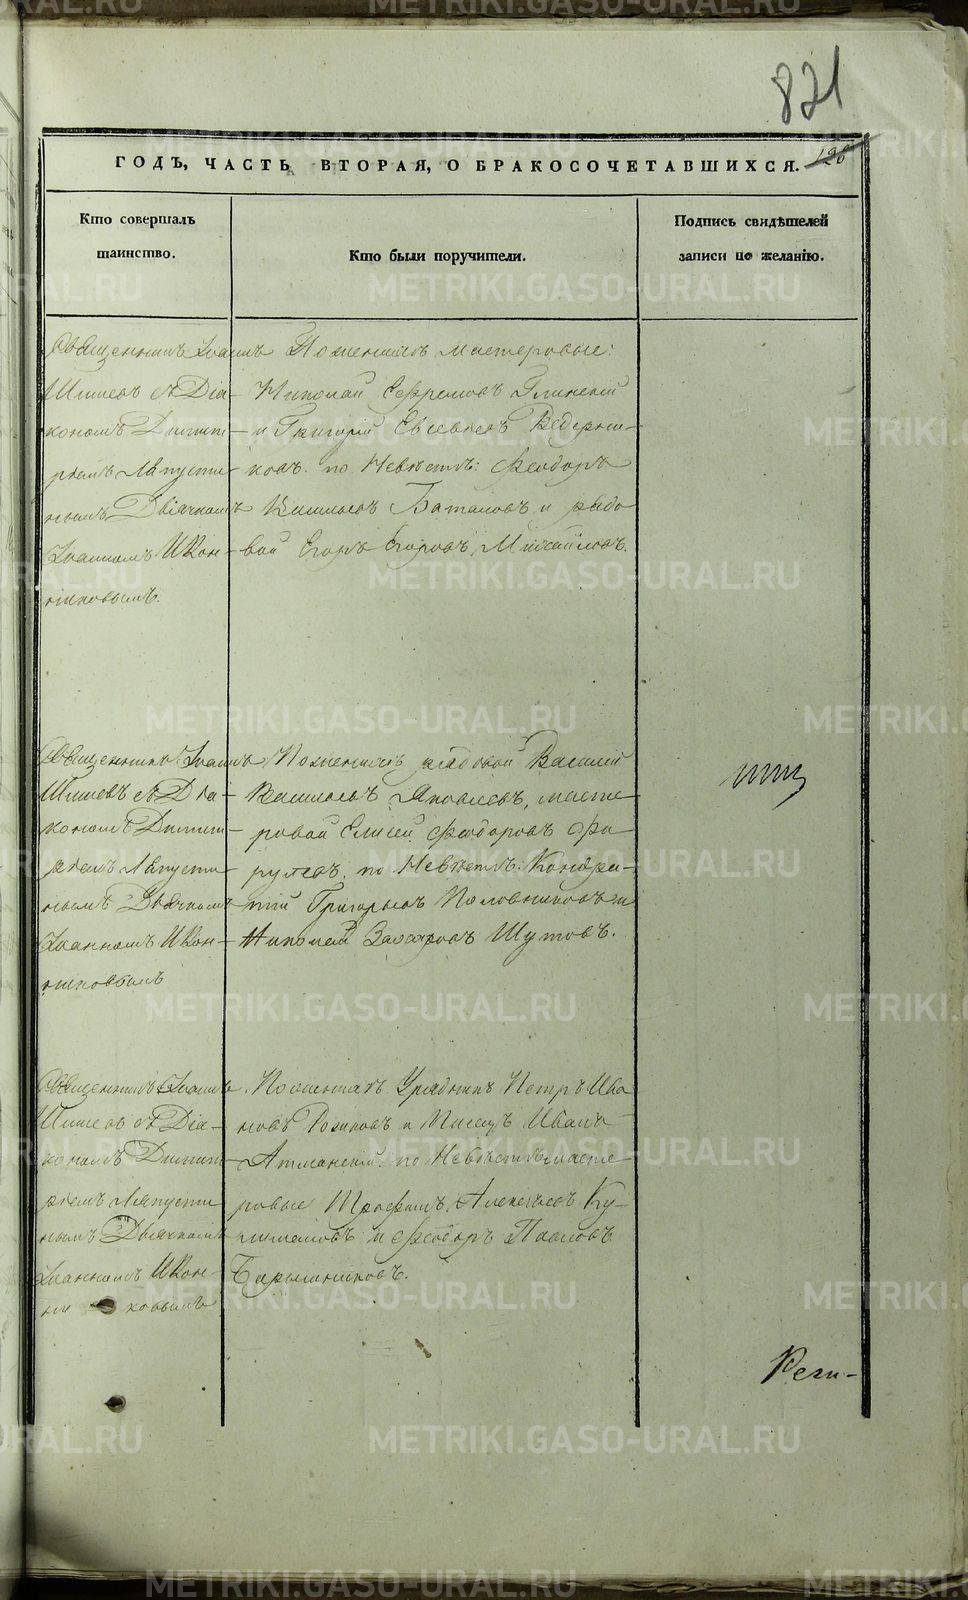 821
ГОДЪ, ЧАСТЬ ВТОРАЯ, О БРАКОСОЧЕТАВШИХСЯ. 126
Кто совершалъ
таинство.
Кто были поручители.
Подпись свидѣтелей
записи по желанію.
Священникъ Іоаннъ
Шишевъ съ Діа-
кономъ Димит-
ріемъ Ляпусти-
нымъ, Дьячкомъ
Іоанномъ Икон-
никовымъ.
По женихѣ мастеровые:
Николай Ефремовъ Глинский
и Григорій Евсевьевъ Ведерни-
ковъ. по Невѣстѣ: Феодоръ
Васильевъ Баталовъ и рядо
вой Егоръ Егоровъ Михайловъ.
Священникъ Іоаннъ
Шишевъ съ Діа-
кономъ Димит-
ріемъ Ляпусти-
нымъ Дьячкомъ
Іоанномъ Икон-
никовымъ
По женихѣ рядовой Василий
Васильевъ Яковлевъ, масте-
ровой Елисей Феодоровъ Фа
рулевъ. по Невѣстѣ: Кондра-
тій Григорьевъ Половниковъ и
Николай Захаровъ Шутовъ.
Священникъ Іоаннъ
Шишевъ съ Діа-
кономъ Димит
ріемъ Ляпусти
нымъ Дьячкомъ
Іоанномъ Икон-
ни ковымъ
По женихѣ Урядникъ Петръ Ива
новъ и Писецъ Иванъ
Атманский. по Невѣстѣ масте
ровые Трофимъ Алексѣевъ Ку-
и Феодоръ Павловъ
Барышниковъ.